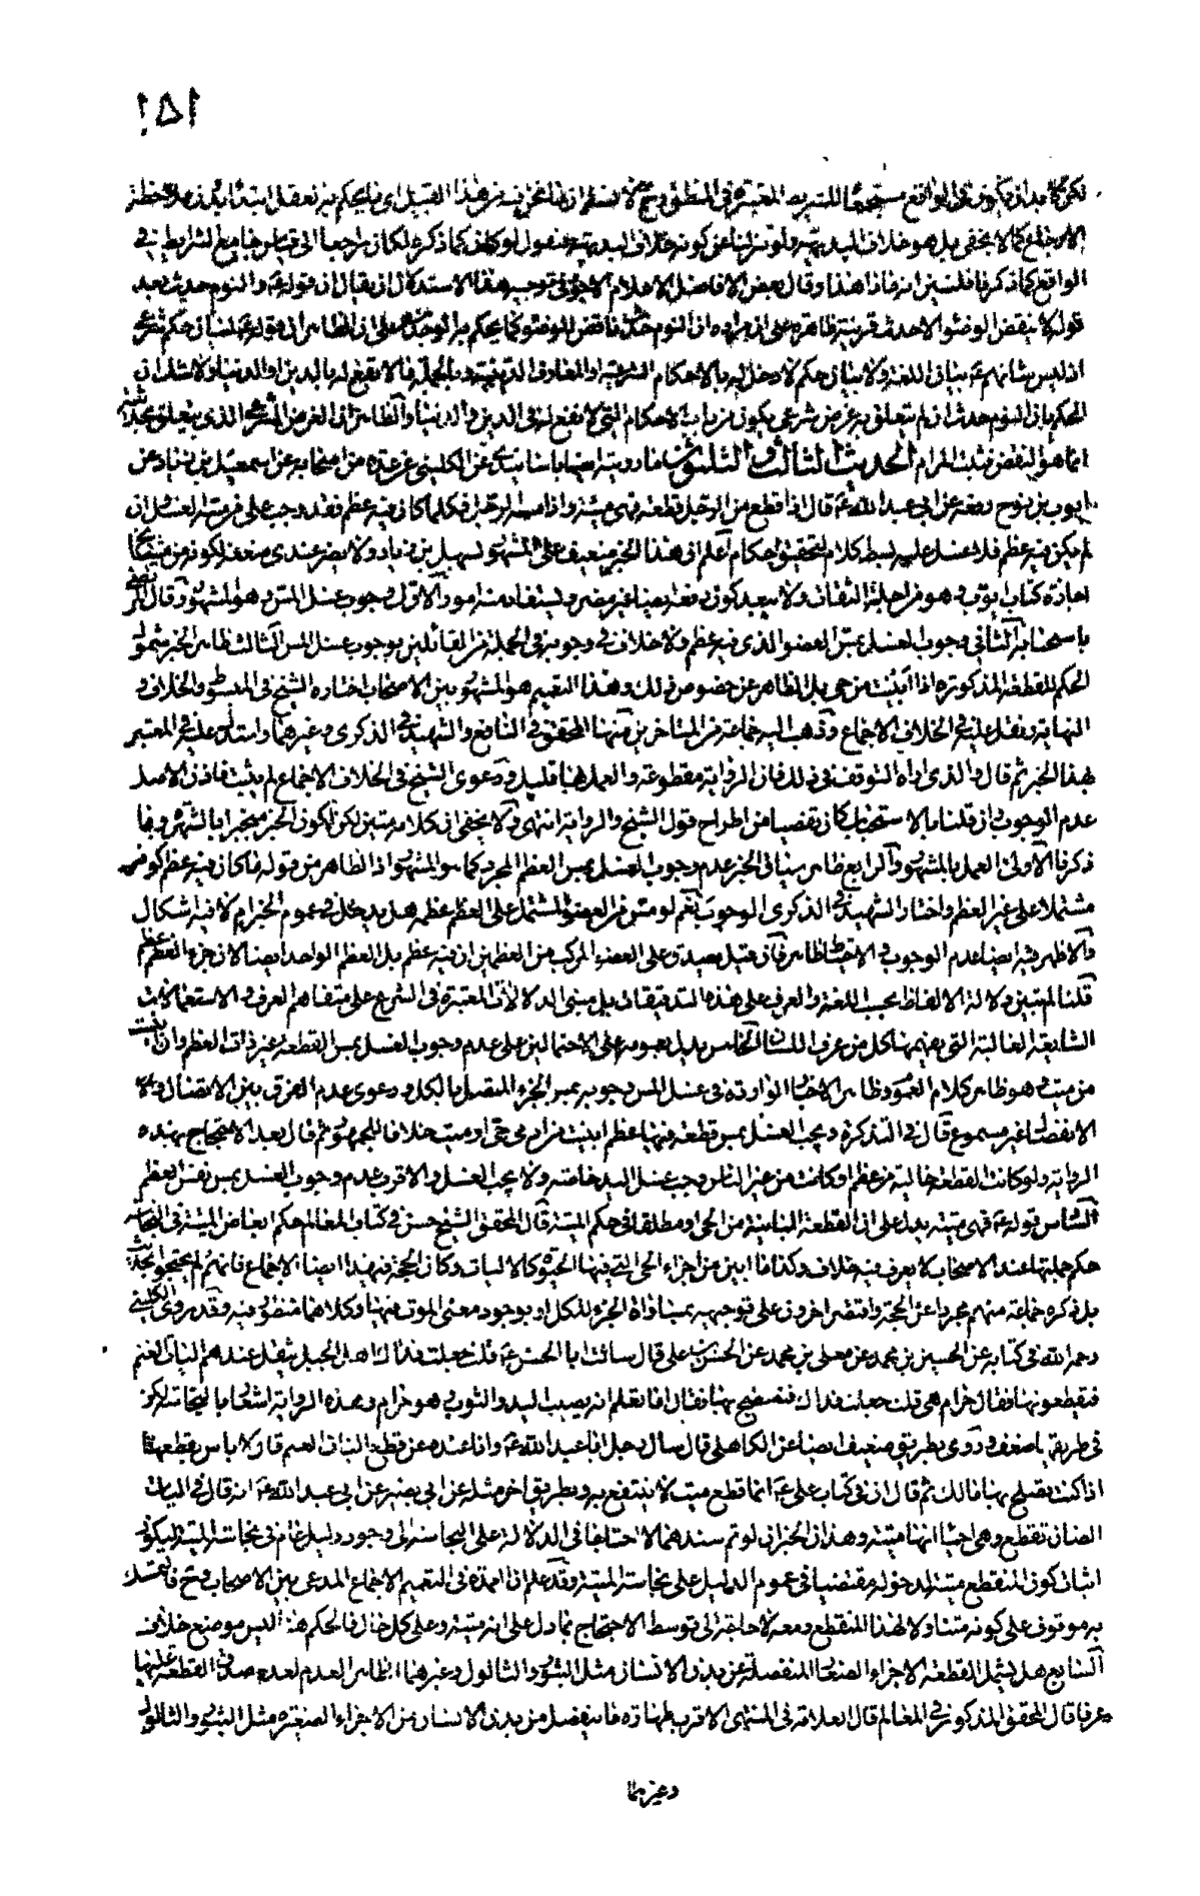 ١٥١
لكن لا بد ان يكون في الواقع مستجمعا للشرايط المعتبرة في المنطق وح لا نسلم ان ما نحن فيه من هذا القبيل اى مما يحكم فيه العقل ابتداء
الاجتماع كما لا يخفى بل هو خلاف البديهة ولو تنزلنا عن كونه خلاف البديهة فنقول لو كان كما ذكره لكان راجعا الى قياس جامع لشرايط في
الواقع كما ذكرنا فلنبين انه ماذا هذا وقال بعض الافاضل الاعلام الاولى في توجيه هذا الاستدلال ان يقال ان قوله ع والنوم حدث بعد
قوله لا ينقض الوضوء الا حدث قرينة ظاهرة على ان مراده ان النوم حدث ناقض للوضوء كما يحكم به الوجدان على ان الظاهر ان قوله ع لبيان حكم شرعى
اذ ليس شانهم ع بيان اللغة ولا بيان حكم لا دخل له بالاحكام الشرعية او المعارف الدينية وبالجملة ما لا ينفع له بالدين او الدنيا ولا شك ان
الحكم بان النوم حدث ان لم يتعلق به غرض شرعى يكون من باب الاحكام التى لا نفع له في الدين والدنيا والظاهر ان الغرض الشرعى الذى يتعلق بحدثيته
انما هو النقض فثبت المرام الحديث الثالث والثلثون ما رويته ايضا باسنادى عن الكلينى عن عدة من اصحابه عن سهل بن زياد عن
ايوب بن نوح رفعه عن ابى عبد الله ع قال اذا قطع من الرجل قطعة فهى ميتة واذا مسه الرجل فكلما كان فيه عظم فقد وجب على من مسه الغسل ان
لم يكن فيه عظم فلا غسل عليه بسط كلام لتحقيق احكام اعلم ان هذا الخبر ضعيف على المشهور لسهل بن زياد ولا يضر عندى ضعفه لكونه من مشايخ
اجازة كتاب ايوب وهو من اجلة الثقات ولا يبعد كون رفعه ايضا غير مضر ويستفاد منه امور الاول وجوب غسل المس وهو المشهور وقال المرتضى
باستحبابه الثانى وجوب الغسل بمس العضو الذى فيه عظم ولا خلاف في وجوبه في الجملة من القائلين بوجوب غسل المس الثالث ظاهر الخبر شمول
الحكم للقطعة المذكورة اذا ابينت من حى بل الظاهر عن خصوص ذلك وهذا التعميم هو المشهور بين الاصحاب اختاره الشيخ في المبسوط والخلاف و
النهاية ونقل عليه في الخلاف الاجماع وذهب اليه جماعة من المتاخرين منهم المحقق في النافع والشهيد في الذكرى وغيرهما واستدل عليه في المعتبر
بهذا الخبر ثم قال والذى اراه التوقف في ذلك فان الرواية مقطوعة والعمل بها قليل ودعوى الشيخ في الخلاف الاجماع لم يثبت فاذن الاصل
عدم الوجوب وان قلنا بالاستحباب كان تفصيا من اطراح قول الشيخ والرواية انتهى ولا يخفى ان كلامه متين لكن لكون الخبر منجبرا بالشهرة وبما
ذكرنا الاولى العمل بالمشهور الرابع ظاهر سياق الخبر عدم وجوب الغسل بمس العظم المجرد كما هو المشهور اذ الظاهر من قوله ما كان فيه عظم كونه
مشتملا على غير العظم واختار الشهيد في الذكرى الوجوب نعم لو مس من العضو المشتمل على العظم عظمه هل يدخل في عموم الخبر ام لا فيه اشكال
والاظهر فيه ايضا عدم الوجوب والاحتياط ظاهر فان قيل يصدق على العضو المركب من العظمين ان فيه عظم بل العظم الواحد ايضا لان جزء العظم عظم
قلنا لم يتبين دلالة الالفاظ بحسب اللغة والعرف على هذه التدقيقات بل مبنى الدلالات المعتبرة في الشرع على متفاهم العرف والاستعمالات
الشايعة الغالبة التى يفهمها كل من عرف اللسان الخامس يدل بعمومه على الاحتمالين على عدم وجوب الغسل بمس القطعة غير ذات العظم وان ابينت
من ميت وهو ظاهر كلام القوم وظاهر الاخبار الواردة في غسل المس وجوبه بمس الجزء المتصل بالكل ودعوى عدم الفرق بين الاتصال و
الانفصال غير مسموع قال في التذكرة ويجب الغسل بمس قطعة فيها عظم ابينت من ادمى حى او ميت خلافا للجمهور ثم قال بعد الاحتجاج بهذه
الرواية ولو كانت القطعة خالية من عظم او كانت من غير الناس وجب غسل اليد خاصة ولا يجب الغسل والاقرب عدم وجوب الغسل بمس نفس العظم
السادس قوله ع فهى ميتة يدل على ان القطعة المباينة من الحى او مطلقا في حكم الميتة قال المحقق الشيخ حسن في كتاب المعالم حكم ابعاض الميتة في النجاسة
حكم جملتها عند الاصحاب لا يعرف فيه خلاف وكذا ما ابين من اجزاء الحى التى فيها الحيوة كالاليات وكان الحجة فيه ايضا الاجماع فانهم لم يحتجوا بحديث
بل ذكره جماعة منهم مجردا عن الحجة واقتصر اخرون على توجيهه بمساواة الجزء للكل او بوجود معنى الموت فيها وكلاهما منظور فيه وقد روى الكلينى
رحمه الله في كتابه عن الحسين بن محمد عن معلى بن محمد عن الحسن بن على قال سألت ابا الحسن ع قلت جعلت فداك ان اهل الجبل يثقل عندهم اليات الغنم
فيقطعونها فقال حرام هى قلت جعلت فداك فيستصبح بها فقال اما تعلم انه يصيب اليد والثوب وهو حرام وبهذه الرواية اشعار بالنجاسة لكن
في طريقها ضعف وروى بطريق ضعيف ايضا عن الكاهلى قال سأل رجل ابا عبد الله ع وانا عنده عن قطع اليات الغنم قال لا باس بقطعها
اذا كنت تصلح بها مالك ثم قال ان في كتاب على ع ان ما قطع ميت لا ينتفع به وبطريق اخر مثله عن ابى بصير عن ابى عبد الله ع انه قال في اليات
الضان تقطع وهى احياء انها ميتة وهذان الخبران لو تم سندهما لاحتاجا في الدلالة على النجاسة الى وجود دليل عام في نجاسة الميتة ليكون
اثبات كون المنقطع ميتة لدخوله مقتضيا في عموم الدليل على نجاسة الميتة وقد علم ان العمدة في التعميم الاجماع المدعى بين الاصحاب وح فالتمسك
به موقوف على كونه متناولا لهذا المنقطع ومعه لا حاجة الى توسط الاحتجاج بما دل على انه ميتة وعلى كل حال فالحكم هنا ليس موضع خلاف
السابع هل يشمل القطعة الاجزاء الصغار المنفصلة عن بدن الانسان مثل البثور والثالول وغيرهما الظاهر العدم لعدم صدق القطعة عليها
عرفا قال المحقق المذكور في المعالم قال العلامة في المنتهى الاقرب طهارة ما ينفصل من بدن الانسان من الاجزاء الصغيرة مثل البثور والثالول
وغيرهما